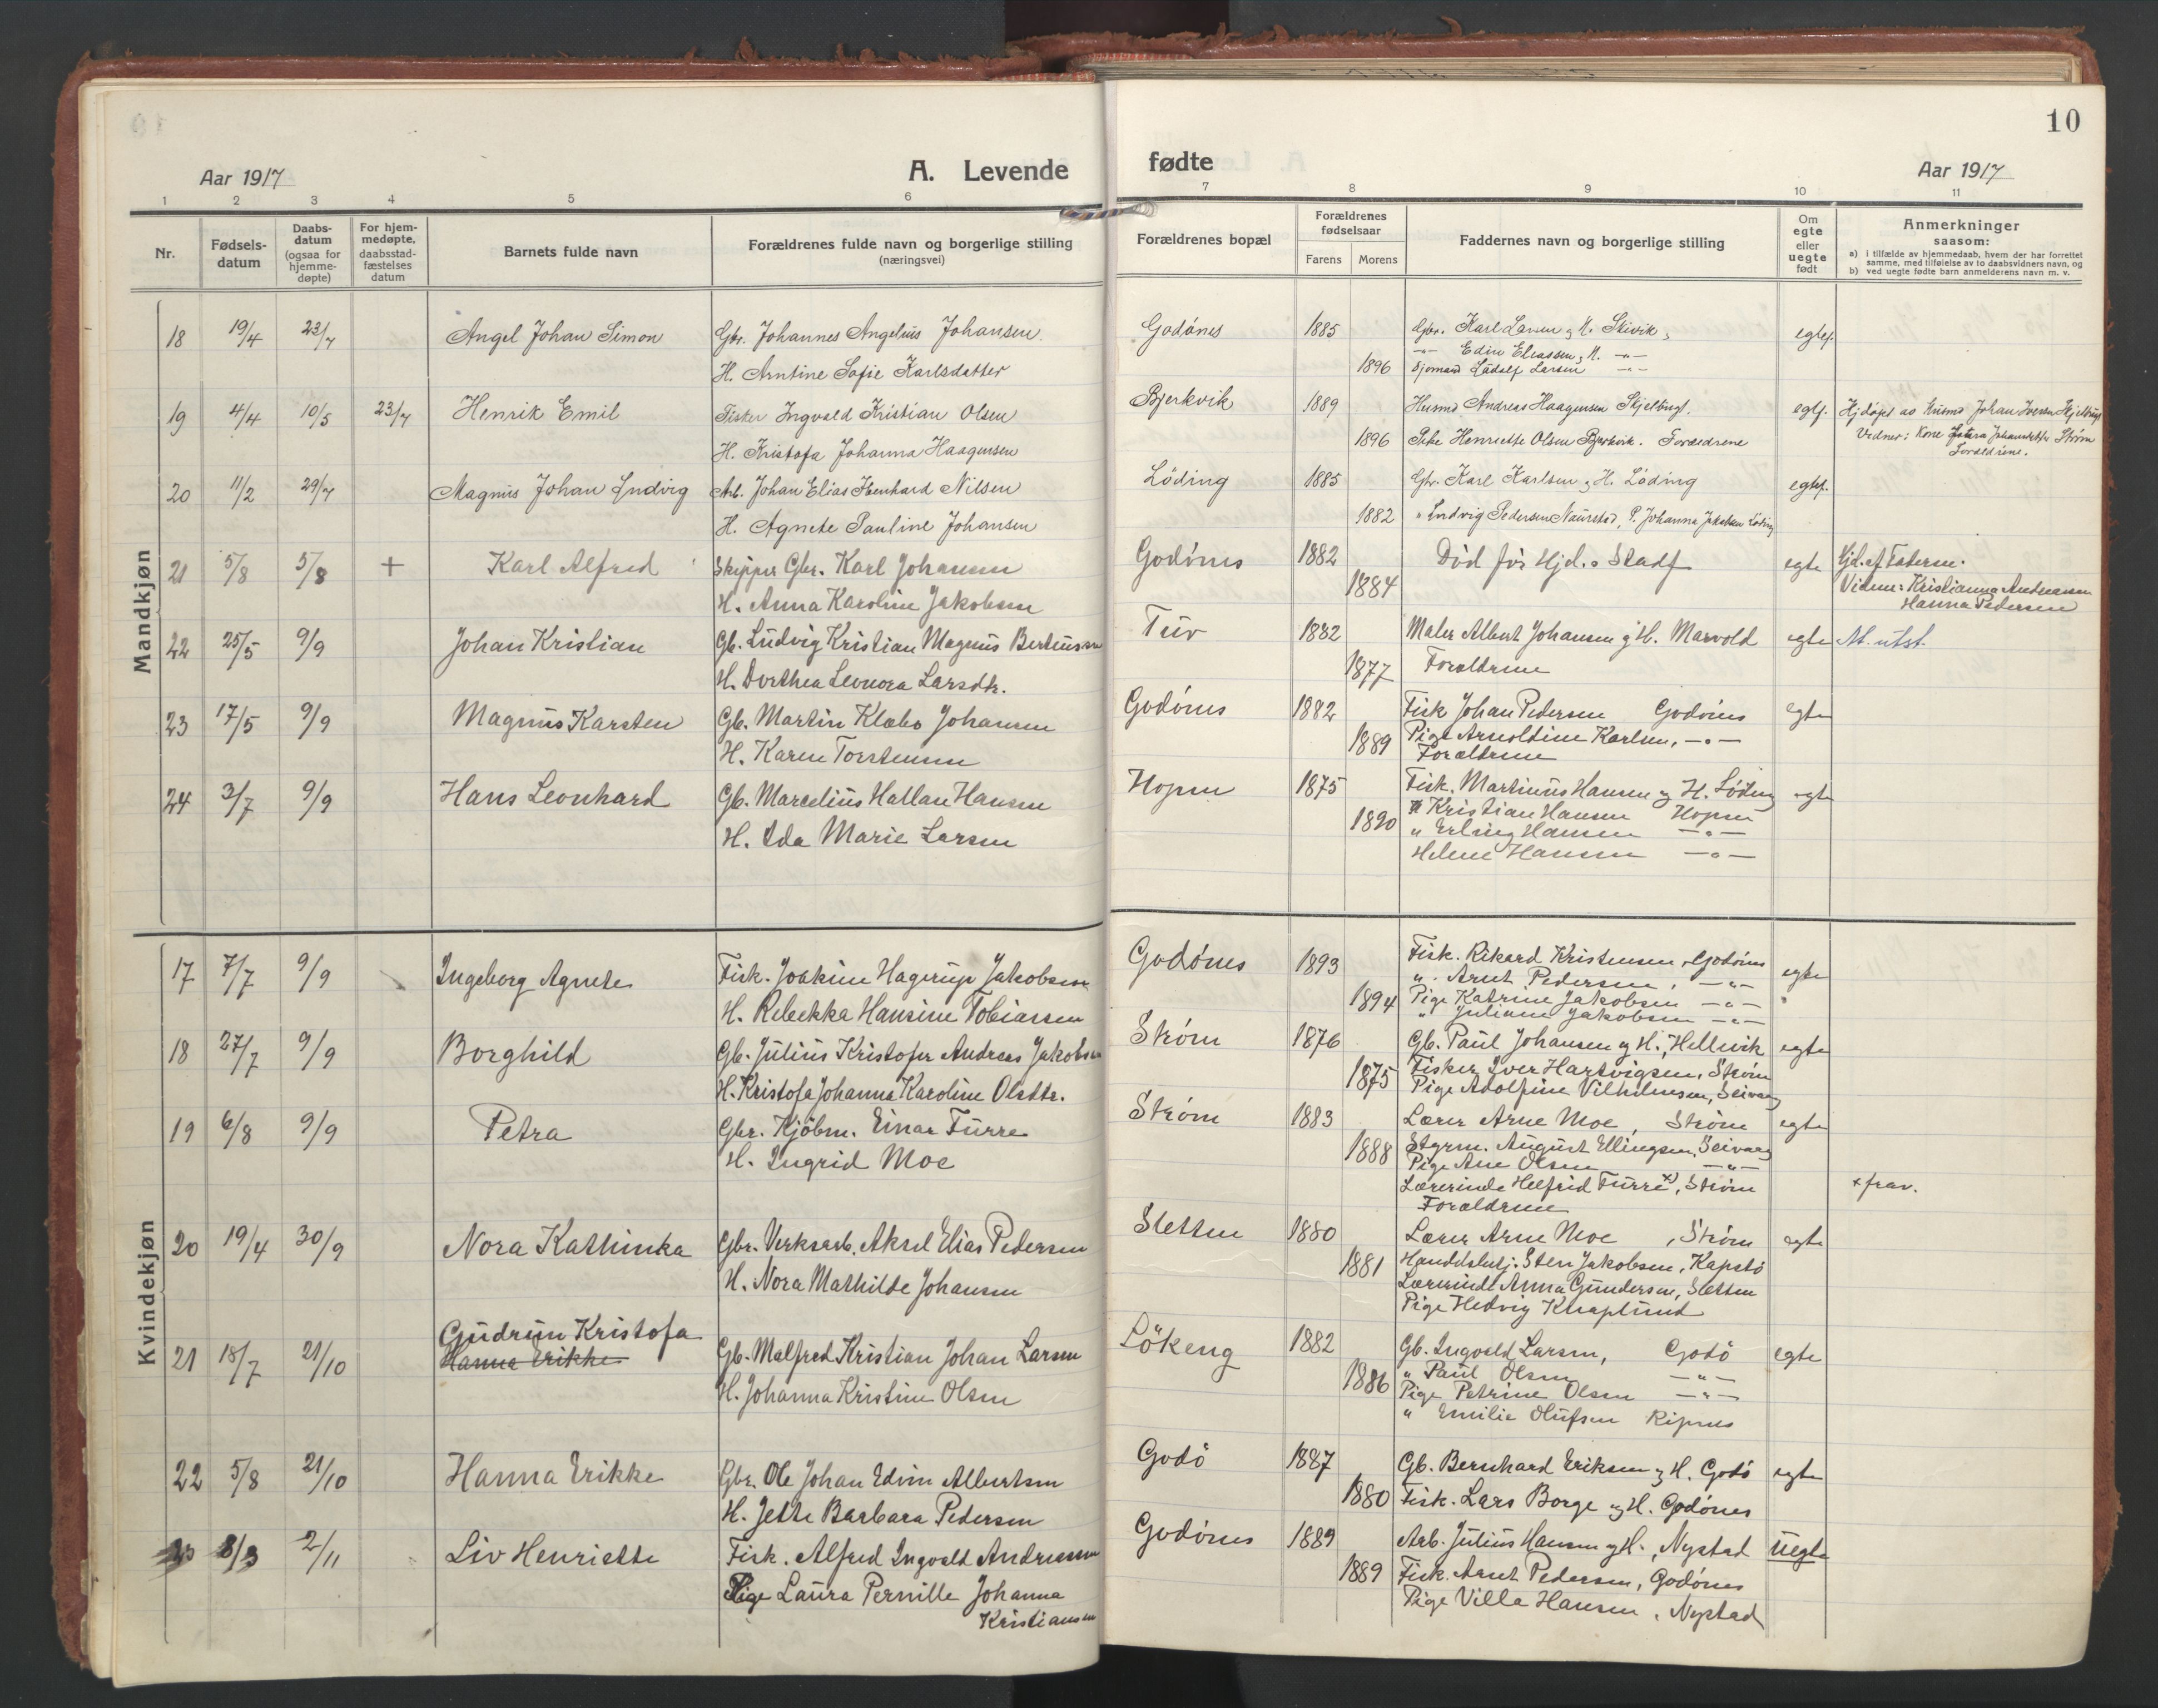 10
Aar 1917
A. Levende
1 2 3 4 5 6
Nr.
Fødsels-
datum
Daabs-
datum
(ogsaa for
hjemme-
døpte)
For hjem-
medøpte,
daabsstad-
fæstelses
datum
Barnets fulde navn
Forældrenes fulde navn og borgerlige stilling
(næringsvei)
fødte
Aar 1917
7 8 9 10 11
Forældrenes bopæl
Forældrenes
fødselsaar
Farens Morens
Faddernes navn og borgerlige stilling
Om
egte
eller
uegte
født
Anmerkninger
saasom:
a) i tilfælde av hjemmedaab, hvem der har forrettet
samme, med tilføielse av to daabsvidners navn, og
b) ved uegte fødte barn anmelderens navn m. v.
Mandkjøn
18 19/4 23/7 Angel Johan Simon Gbr. Johannes Angelius Johansen Godönes 1885 Gbr. Karl Larsen & H. Skivik, egtef.
H. Arntine Sofie Karlsdatter 1896
-"- Edin Eliassen & H. -"-
Sjømand Ludolf Larsen -"-
19 4/4 10/5 23/7 Henrik Emil Fisker Ingvald Kristian Olsen Bjerkvik 1889 Husmd Andreas Haagensen Skjelbugt. egtf. Hjdöpt av Husmd Johan Iversen Skjelbugt
H. Kristofa Johanna Haagensen 1896 Pike Henriette Olsen Bjerkvik. Forældrene
Vidner: Kone Johansdatter Strøm
Forældrene.
20 11/2 29/7 Magnus Johan Ludvig Arb. Johan Elias Edenhard Nilsen Löding 1885 Gbr. Karl Karlsen & H. Löding egtef.
H. Agnete Pauline Johansen 1882 " Ludvig Pedersen Naurstad, P. Johanna Jakobsen Löding
21 5/8 5/8 + Karl Alfred Skipper Gbr. Karl Johansen Godönes 1882 Död för Hjd.s Stadf egte Hjd. af Faderen.
H. Anna Karoline Jakobsen 1884
Vidner: Kristianna Andreassen
Hanna Pedersen
22 25/5 9/9 Johan Kristian Gb. Ludvig Kristian Magnus Berteussen Tuv 1882 Maler Albert Johansen & H. Marvold egte At. utst.
H. Dorthea Leonora Larsdtr. 1877 Forældrene
23 17/5 9/9 Magnus Karsten Gb. Martin Klæbo Johansen Godönes 1882 Fisk Johan Pedersen Godönes egte
H. Karen Torstensen 1889 Pige Arnoldine Karlsen, -"-
Forældrene
24 3/7 9/9 Hans Leonhard Gb. Marcelius Hallan Hansen Hopen 1875 Fisk. Martinus Hansen og H. Löding egte
H. Ida Marie Larsen 1890 " Kristian Hansen Hopen
" Erling Hansen -"-
Helene Hansen -"-
Kvindekjøn
17 7/7 9/9 Ingeborg Agnete Fisk. Joakim Hagerup Jakobsen Godönes 1893 Fisk. Rikard Kristensen, Godönes egte
". Arnt Pedersen, -"-
H. Rebekka Hansine Tobiassen 1894 Pige Katrine Jakobsen -"-
" Juliane Jakobsen -"-
18 27/7 9/9 Borghild Gb. Julius Kristofer Andreas Jakobsen Ström 1876 Gb. Paul Johansen og H., Hellevik egte
H. Kristofa Johanna Karoline Olsdtr. 1875 Fisker Iver Hartvigsen, Ström
Pige Adolfine Vilhelmsen, Seivaag
19 6/8 9/9 Petra Gbr. Kjöbm. Einar Furre Ström 1883 Lærer Arne Moe, Ström egte
H. Ingrid Moe 1888 Styrm. August Ellingsen, Seivaag
Pige Ane Olsen -"-
Lærerinde Helfrid Furre x), Ström x frav.
Forældrene
20 19/4 30/9 Nora Kathinka Gbr. Verksarb. Aksel Elias Pedersen Sletten 1880 Lærer Arne Moe, Ström egte
H. Nora Mathilde Johansen 1881 Handelsbetj. Sten Jakobsen, Kapstö
Lærerinde Anna Gundersen, Sletten
Pige Hedvig Knaplund
21 18/7 21/10 Gudrun Kristofa
Hanna Erikke
Gb. Malfred Kristian Johan Larsen Lökeng 1882 Gb. Ingvald Larsen, Godö egte
H. Johanna Kristine Olsen 1886 " Paul Olsen -"-
Pige Petrine Olsen -"-
" Emilie Olufsen Ripnes
22 5/8 21/10 Hanna Erikke Gbr. Ole Johan Edvin Albertsen Godö 1887 Gb. Bernhard Eriksen og H. Godö egte
H. Jette Barbara Pedersen 1880 Fisk. Lars Borge og H. Godönes
23 8/3 2/11 Liv Henriette Fisk. Alfred Ingvald Andreassen Godönes 1889 Arb. Julius Hansen og H., Nystad Uegte
Pige Laura Pernille Johanna 1889 Fisk. Arnt Pedersen, Godönes
Kristiansen Pige Villa Hansen, Nystad